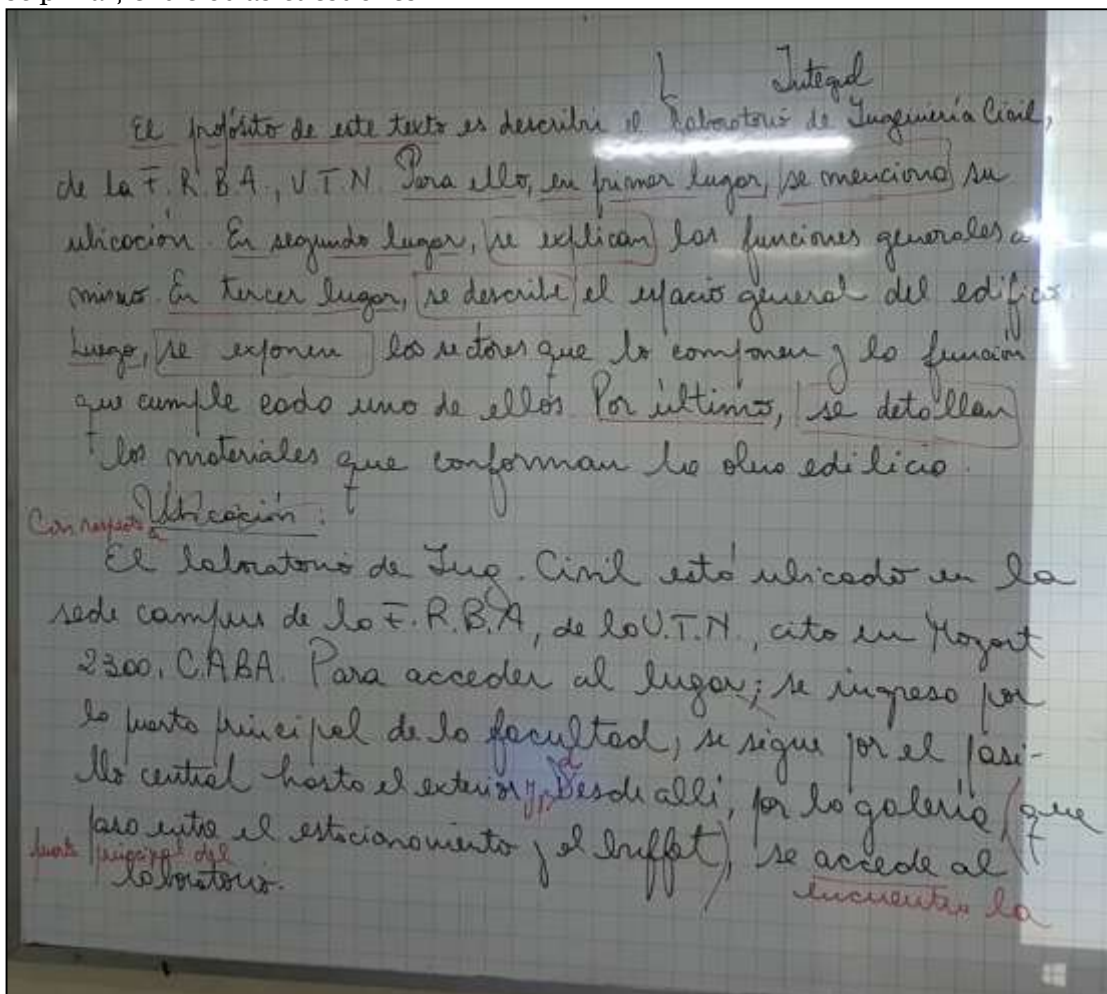 Integral
El propósito de este texto es describir el Laboratorio de Ingeniería Civil,
de la F.R.B.A., U T N. Para ello, en primer lugar, se menciona su
ubicación. En segundo lugar, se explican las funciones generales
mismo. En tercer lugar, se describe el espacio general del edificio
Luego, se exponen los sectores que lo componen y la función
que cumple cada uno de ellos. Por último, se detallan
los materiales que conforman edilicia.
Con respecto a Ubicación:
El laboratorio de Ing. Civil está ubicado en la
sede campus de la F.R.B.A, de la U.T.N., cito en Mozart
2300, CABA. Para acceder al lugar; se ingresa por
la puerta principal de la facultad, se sigue por el pasi-
llo central hasta el exterior y, Desde allí, por la galería (que
d
pasa entre el estacionamiento y el buffet), se accede al
puerta principal del
laboratorio.
encuentra la